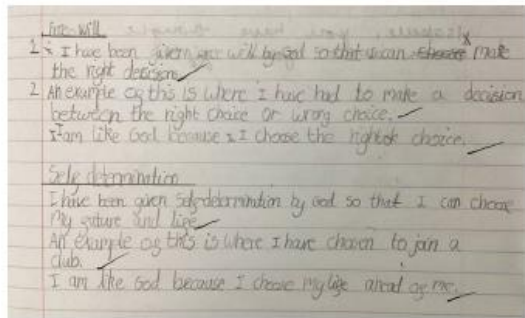 Free will
1. I have been given free will by God so that I can make
the right decision
2 An example of this is where I have had to make a decision
between the right choice or wrong choice.
I am like God because I choose the right choice.
Self determination
I have been given self-determination by God so that I can choose
my future and life
An example of this is where I have chosen to join a
club.
I am like God because I choose my life ahead of me.